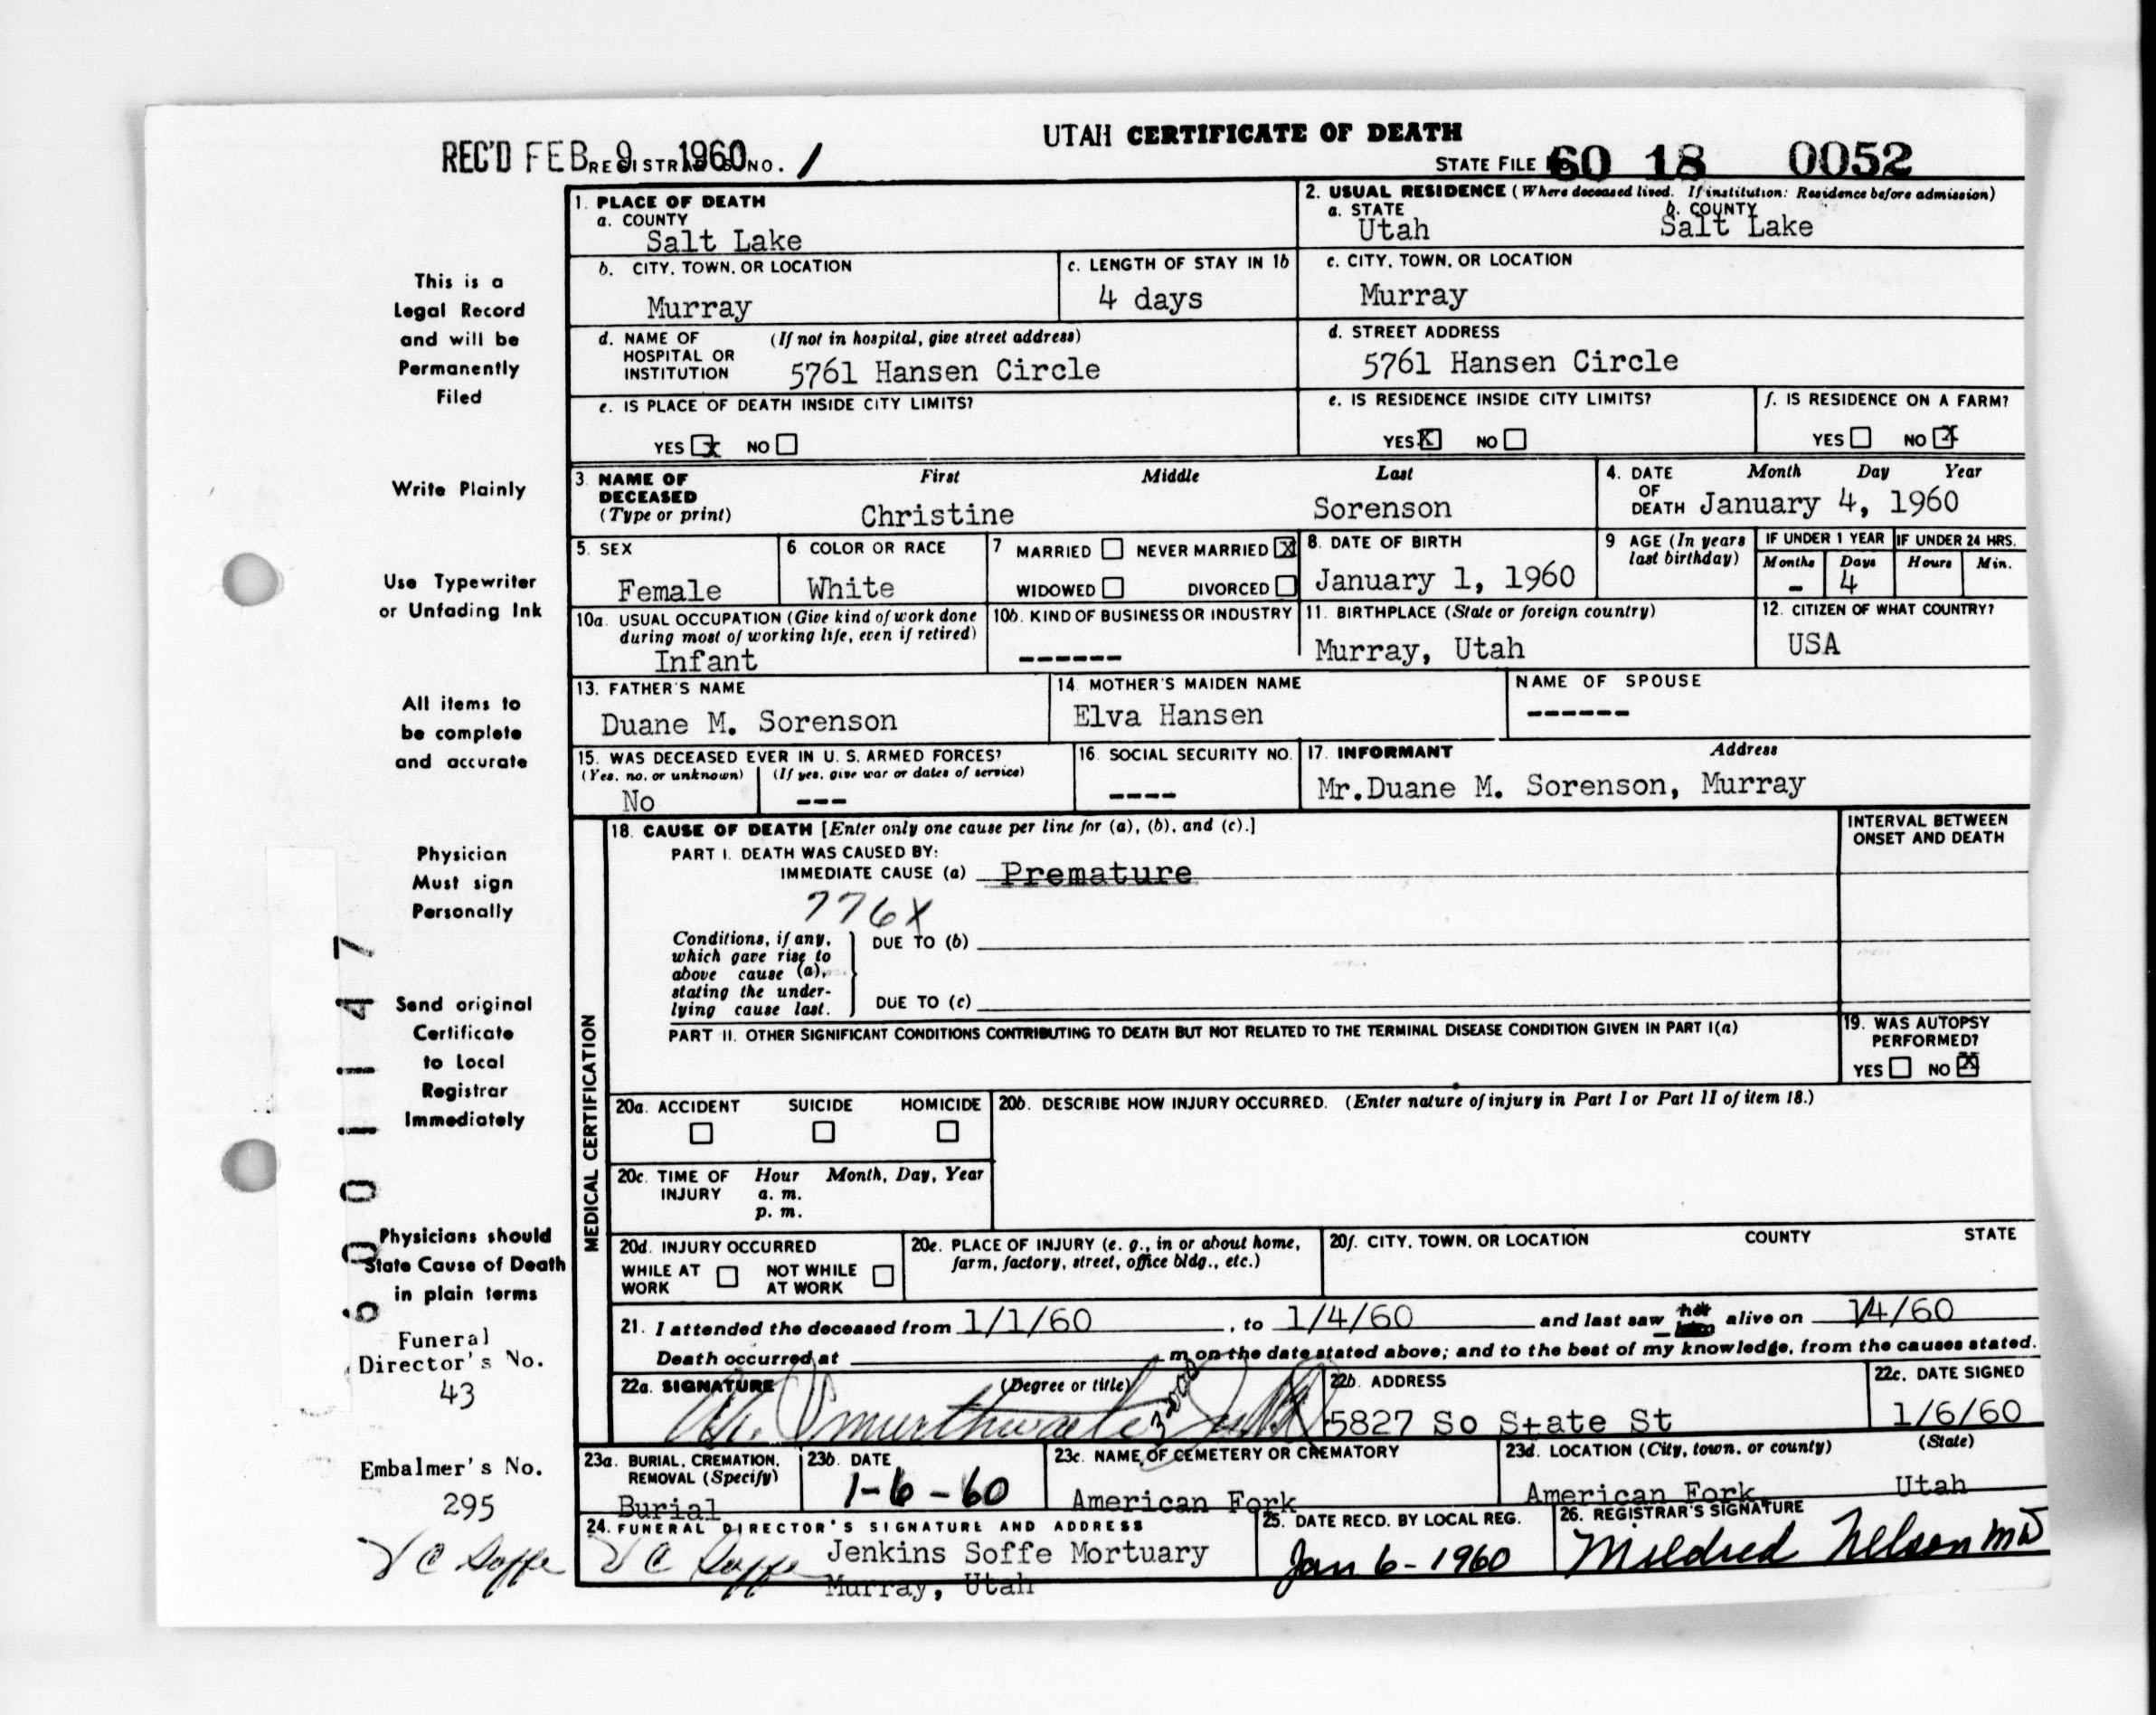 UTAH CERTIFICATE OF DEATH
REC'D FEB 9 1960 REGISTRAR'S NO. 1
STATE FILE 60 18 0052
This is a
Legal Record
and will be
Permanently
Filed
Write Plainly
Use Typewriter
or Unfading Ink
All items to
be complete
and accurate
Physician
Must sign
Personally
Send original
Certificate
to Local
Registrar
Immediately
Physicians should
State Cause of Death
in plain terms
Funeral
Director's No.
43
Embalmer's No.
295
V C Soffe
60 01147
1. PLACE OF DEATH
a. COUNTY
Salt Lake
2. USUAL RESIDENCE (Where deceased lived. If institution: Residence before admission)
a. STATE b. COUNTY
Utah Salt Lake
b. CITY, TOWN, OR LOCATION
Murray
c. LENGTH OF STAY IN 1b
4 days
c. CITY, TOWN, OR LOCATION
Murray
d. NAME OF (If not in hospital, give street address)
HOSPITAL OR
INSTITUTION 5761 Hansen Circle
d. STREET ADDRESS
5761 Hansen Circle
e. IS PLACE OF DEATH INSIDE CITY LIMITS?
YES X NO
e. IS RESIDENCE INSIDE CITY LIMITS?
YES X NO
f. IS RESIDENCE ON A FARM?
YES NO X
3. NAME OF First Middle Last
DECEASED
(Type or print) Christine Sorenson
4. DATE Month Day Year
OF
DEATH January 4, 1960
5. SEX
Female
6. COLOR OR RACE
White
7 MARRIED NEVER MARRIED X
WIDOWED DIVORCED
8. DATE OF BIRTH
January 1, 1960
9 AGE (In years
last birthday)
IF UNDER 1 YEAR IF UNDER 24 HRS.
Months Days Hours Min.
- 4
10a. USUAL OCCUPATION (Give kind of work done
during most of working life, even if retired)
Infant
10b. KIND OF BUSINESS OR INDUSTRY
------
11. BIRTHPLACE (State or foreign country)
Murray, Utah
12. CITIZEN OF WHAT COUNTRY?
USA
13. FATHER'S NAME
Duane M. Sorenson
14. MOTHER'S MAIDEN NAME
Elva Hansen
NAME OF SPOUSE
------
15. WAS DECEASED EVER IN U. S. ARMED FORCES?
(Yes, no, or unknown) (If yes, give war or dates of service)
No ---
16. SOCIAL SECURITY NO.
----
17. INFORMANT Address
Mr.Duane M. Sorenson, Murray
MEDICAL CERTIFICATION
18. CAUSE OF DEATH [Enter only one cause per line for (a), (b), and (c).]
INTERVAL BETWEEN
ONSET AND DEATH
PART I. DEATH WAS CAUSED BY:
IMMEDIATE CAUSE (a) Premature
776X
Conditions, if any,
which gave rise to
above cause (a),
stating the under-
lying cause last.
DUE TO (b)
DUE TO (c)
PART II. OTHER SIGNIFICANT CONDITIONS CONTRIBUTING TO DEATH BUT NOT RELATED TO THE TERMINAL DISEASE CONDITION GIVEN IN PART I(a)
19. WAS AUTOPSY
PERFORMED?
YES NO X
20a. ACCIDENT SUICIDE HOMICIDE
20b. DESCRIBE HOW INJURY OCCURRED. (Enter nature of injury in Part I or Part II of item 18.)
20c. TIME OF Hour Month, Day, Year
INJURY a. m.
p. m.
20d. INJURY OCCURRED
WHILE AT NOT WHILE
WORK AT WORK
20e. PLACE OF INJURY (e. g., in or about home,
farm, factory, street, office bldg., etc.)
20f. CITY, TOWN, OR LOCATION COUNTY STATE
21. I attended the deceased from 1/1/60, to 1/4/60 and last saw her alive on 1/4/60
Death occurred at m on the date stated above; and to the best of my knowledge, from the causes stated.
22a. SIGNATURE (Degree or title)
22b. ADDRESS
5827 So State St
22c. DATE SIGNED
1/6/60
23a. BURIAL, CREMATION,
REMOVAL (Specify)
Burial
23b. DATE
1-6-60
23c. NAME OF CEMETERY OR CREMATORY
American Fork
23d. LOCATION (City, town, or county) (State)
American Fork Utah
24. FUNERAL DIRECTOR'S SIGNATURE AND ADDRESS
V C Soffe Jenkins Soffe Mortuary
Murray, Utah
25. DATE RECD. BY LOCAL REG.
Jan 6-1960
26. REGISTRAR'S SIGNATURE
Mildred Nelson